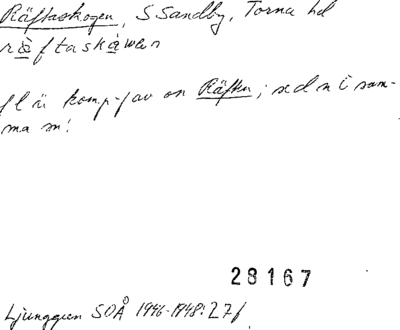 Räftaskogen, S Sandby, Torna hd
räftaskåwan
fl ä komp-f av on Räften; se d n i sam-
ma sn!
28167
Ljunggren SOÅ 1946-1948:27f